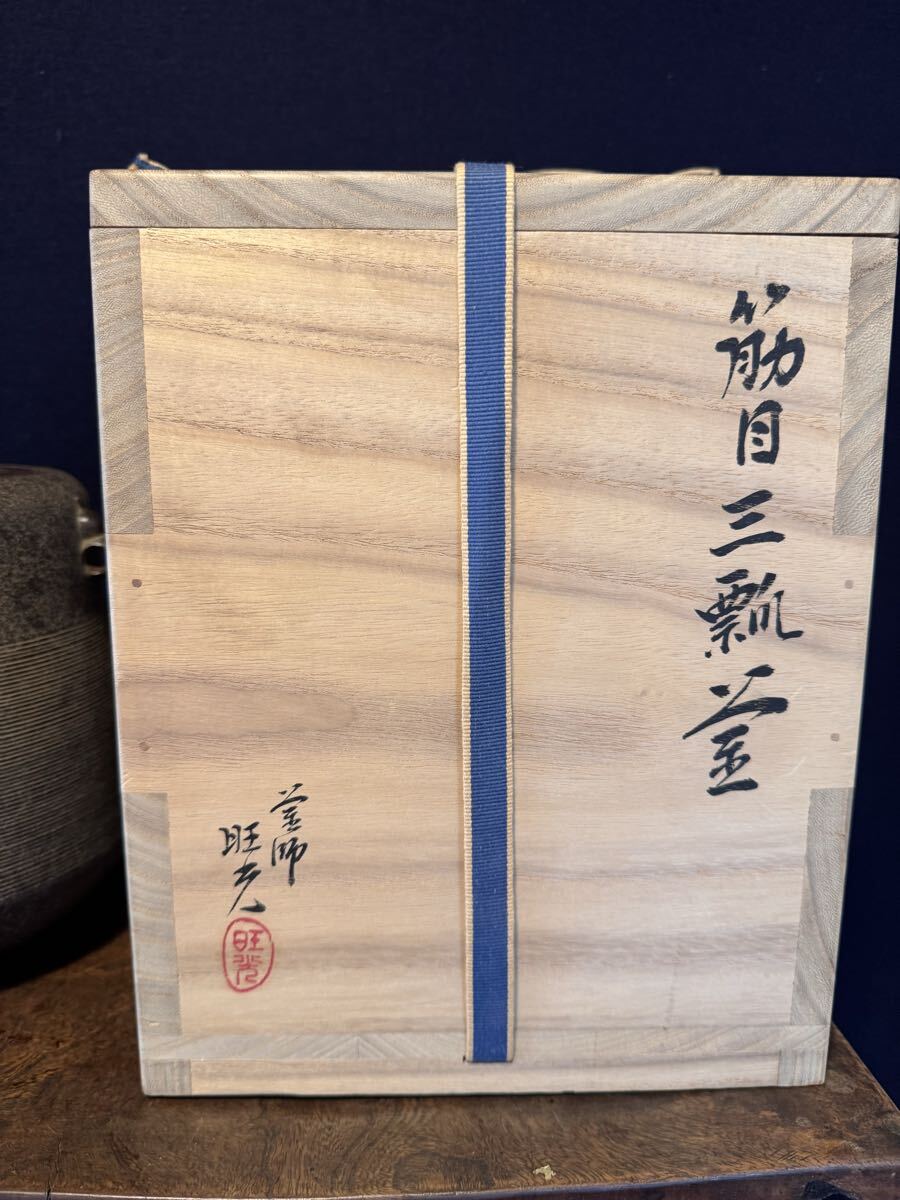 筋目三瓢釜
釜師
旺光
旺光